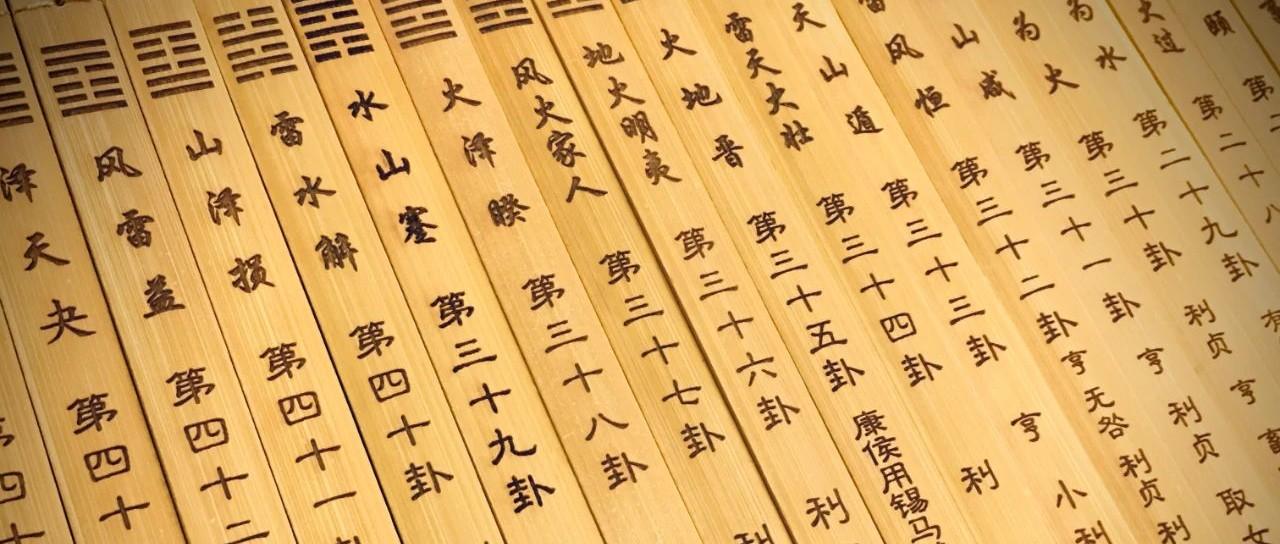 颐 第二
大过 第二十八
为水 第二十九卦
为火 第三十卦 利贞 亨
山咸 第三十一卦 亨 利贞 取女
雷风恒 第三十二卦 亨 无咎 利贞 利
天山遁 第三十三卦 亨 小利
雷天大壮 第三十四卦 利
火地晋 第三十五卦 康侯用锡马
地火明夷 第三十六卦 利
风火家人 第三十七卦 利
火泽睽 第三十八卦
水山蹇 第三十九卦
雷水解 第四十卦
山泽损 第四十一
风雷益 第四十二
泽天夬 第四十
四十